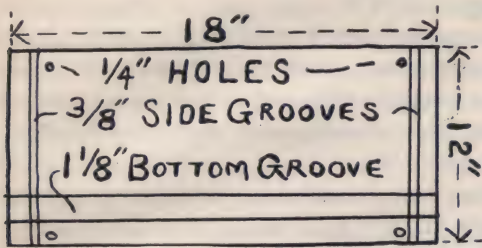 18"
1/4" HOLES
3/8" SIDE GROOVES
12"
1 1/8" BOTTOM GROOVE